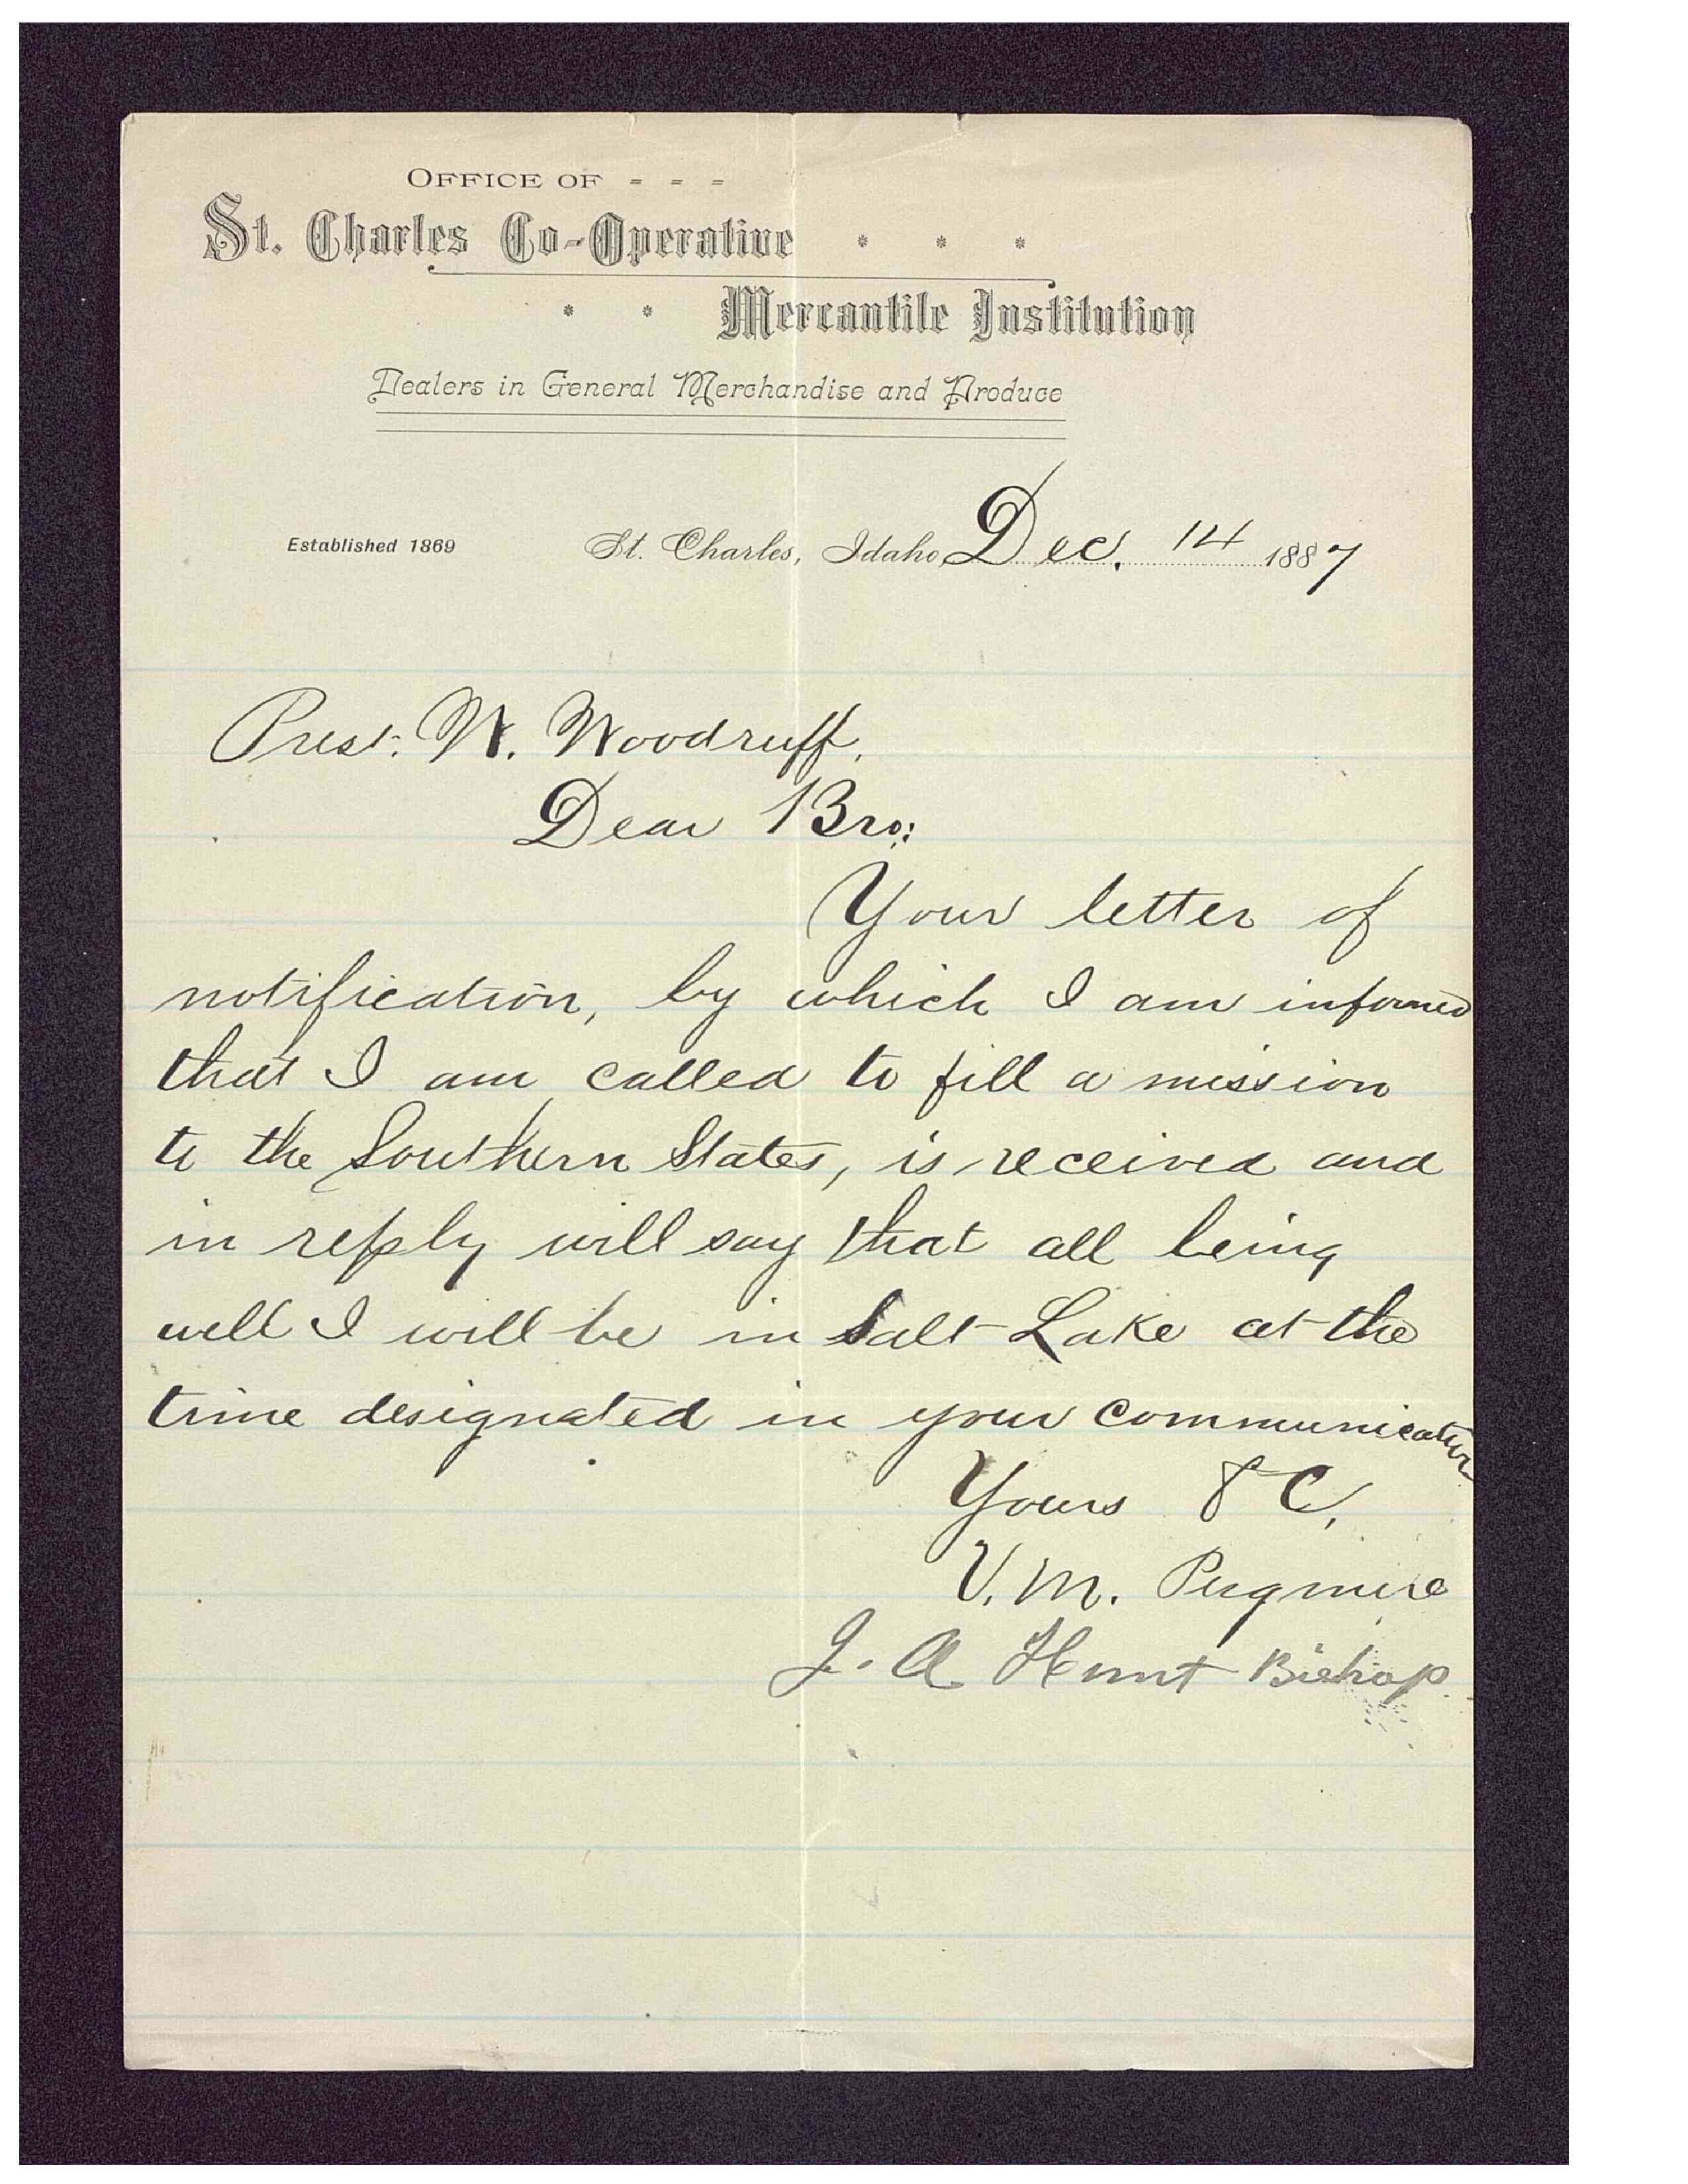 OFFICE OF - - -
St. Charles Co-Operative * * *
* * Mercantile Institution
Dealers in General Merchandise and Produce
Established 1869 St. Charles, Idaho, Dec. 14 1887
Prest. W. Woodruff,
Dear Bro;
Your letter of
notification, by which I am informed
that I am called to fill a mission
to the Southern States, is received and
in reply will say that all being
well I will be in Salt Lake at the
time designated in your communication
Yours &C,
V. M. Pugmire
J. A Hunt Bishop